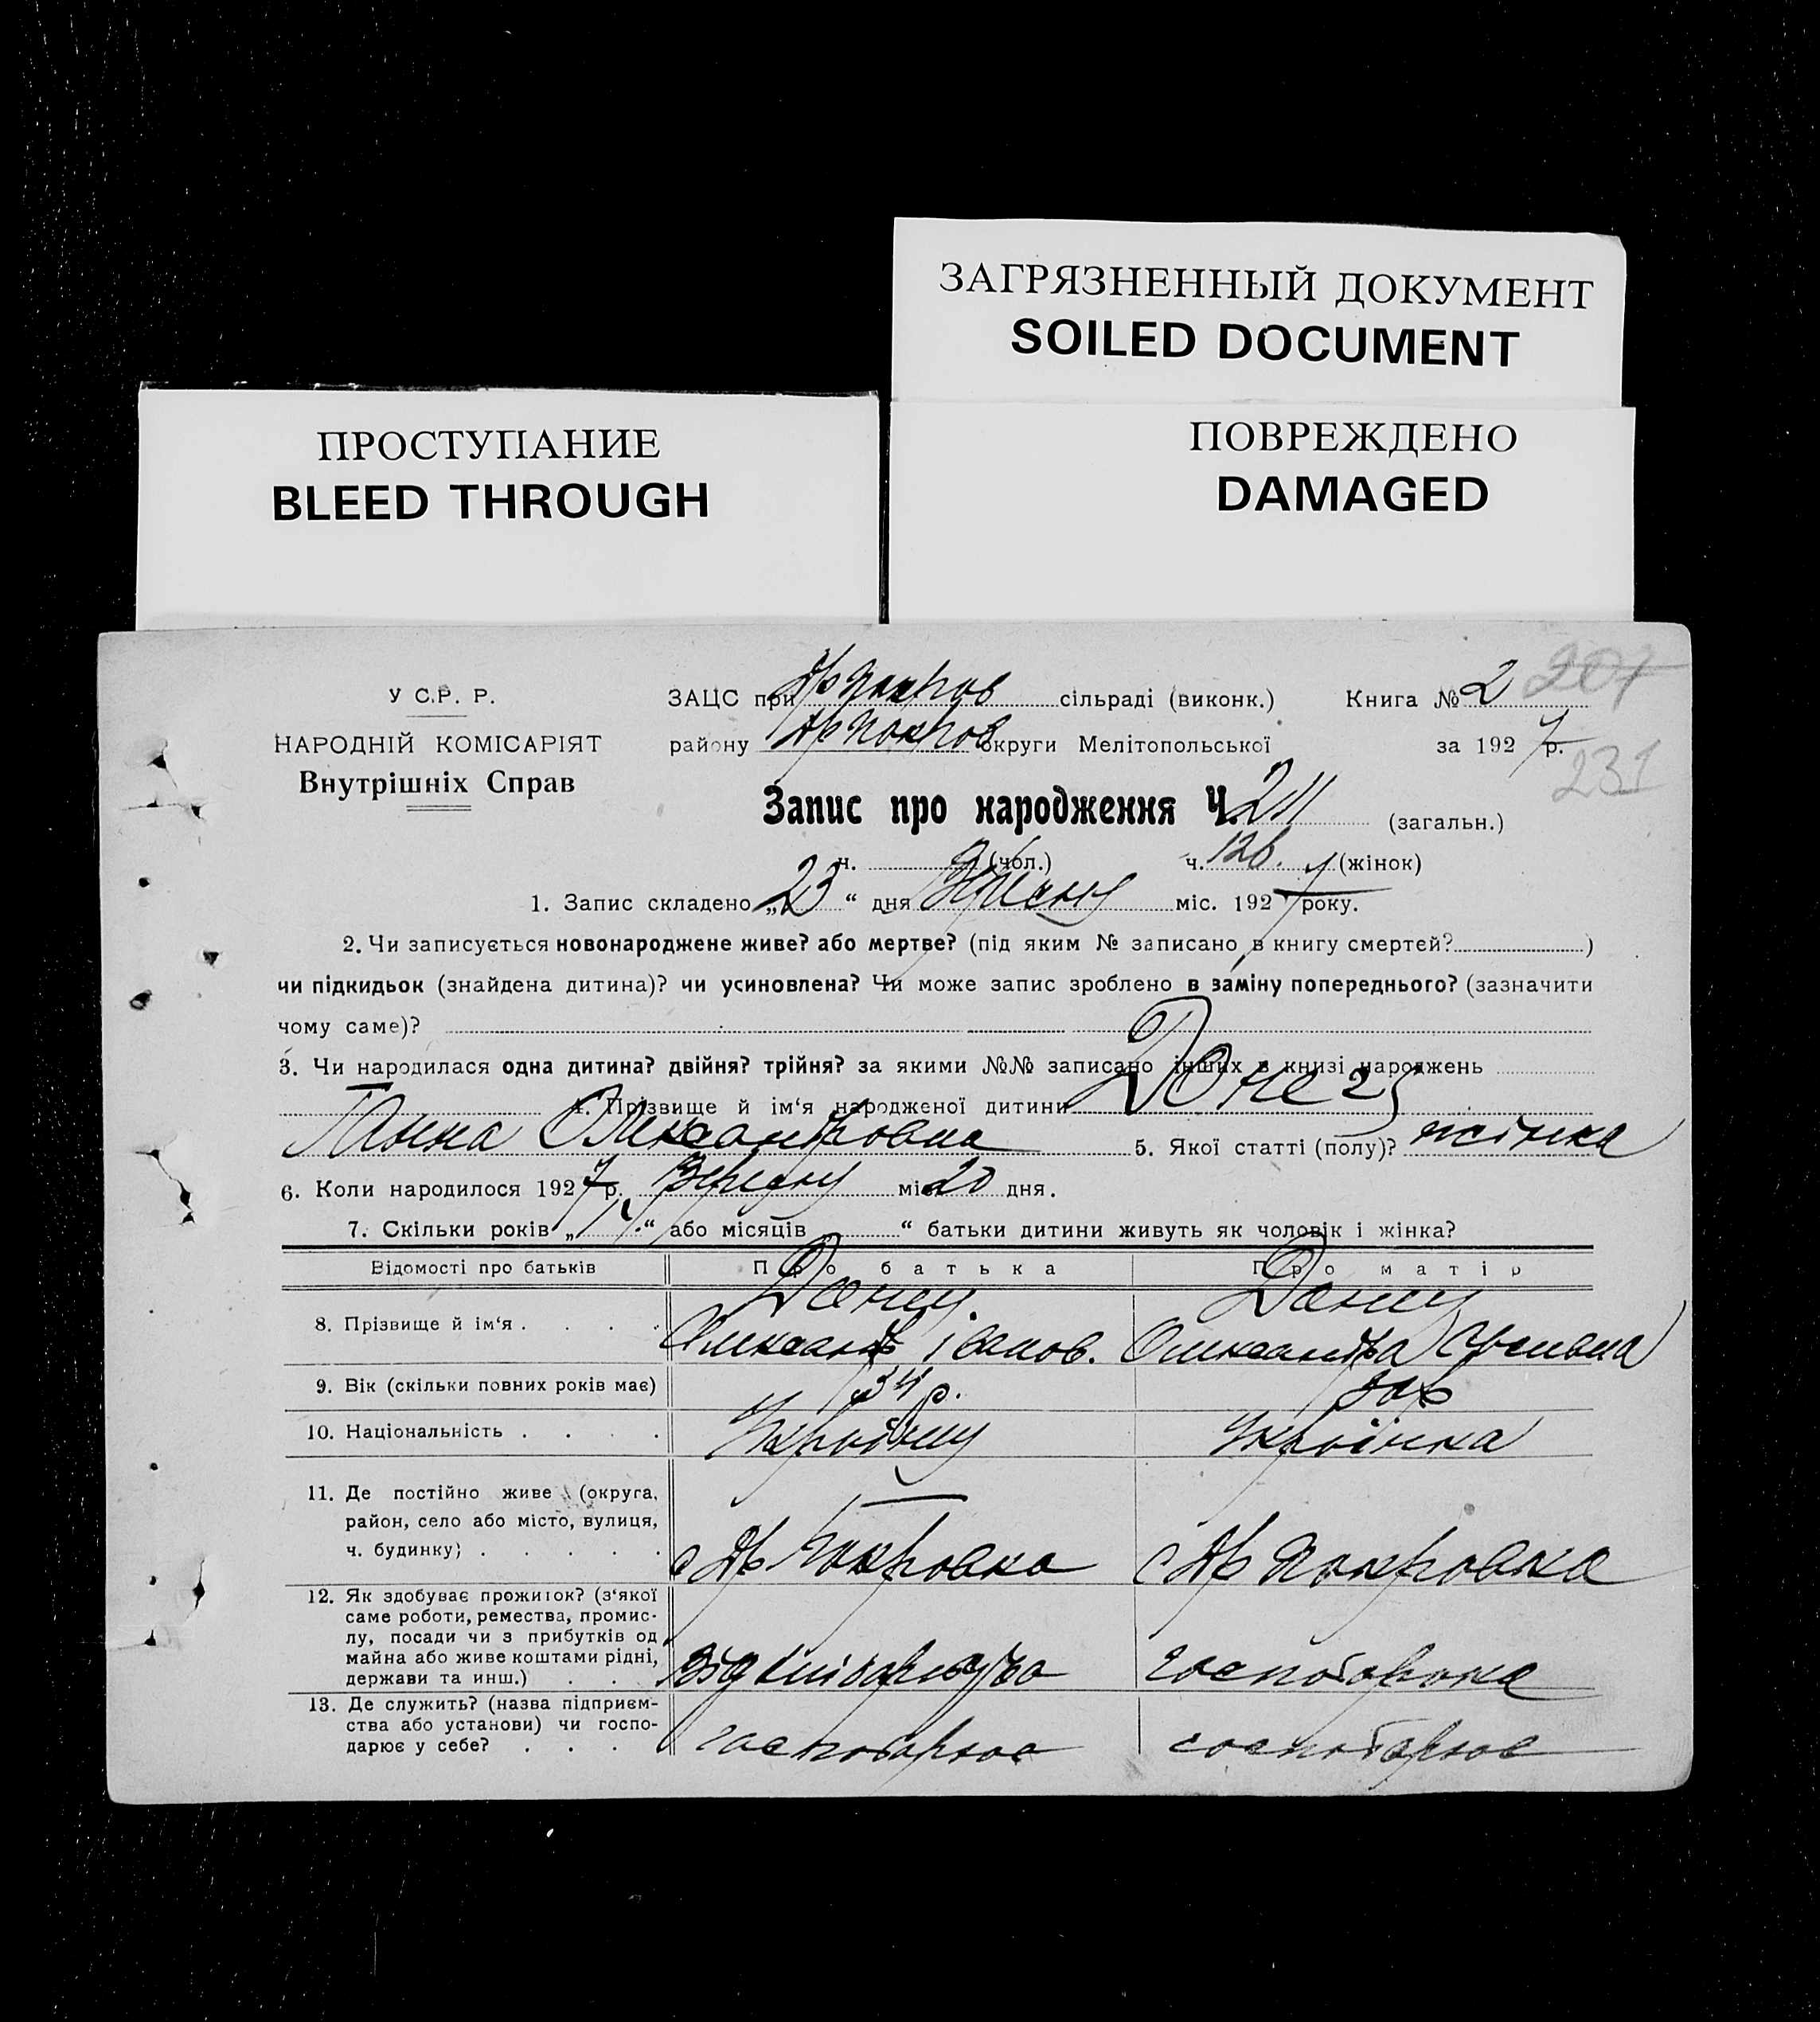 ЗАГРЯЗНЕННЫЙ ДОКУМЕНТ
SOILED DOCUMENT
ПРОСТУПАНИЕ
BLEED THROUGH
ПОВРЕЖДЕНО
DAMAGED
У С.Р. Р.
НАРОДНІЙ КОМІСАРІЯТ
Внутрішніх Справ
ЗАЦС при Нр Покров сільраді (виконк.) Книга № 2 207
району Нр Покров округи Мелітопольської за 1927 р.
231
Запис про народження Ч. 211 (загальн.)
ч. (чол.) ч. 126. (жінок)
1. Запис складено „23“ дня міс. 1927 року.
2. Чи записується новонароджене живе? або мертве? (під яким № записано в книгу смертей? )
чи підкидьок (знайдена дитина)? чи усиновлена? Чи може запис зроблено в заміну попереднього? (зазначити
чому саме)?
3. Чи народилася одна дитина? двійня? трійня? за якими №№ записано інших в книзі народжень
4. Прізвище й ім‘я народженої дитини Донец
Ганна Олександровна 5. Якої статті (полу)? жінка
6. Коли народилося 1927 р. Вересню міс 20 дня.
7. Скільки років „ “ або місяців „ “ батьки дитини живуть як чоловік і жінка?
Відомості про батьків Про батька Про матір
8. Прізвище й ім‘я . . . . Донец. Донец
Олександр Іванов. Олександра
9. Вік (скільки повних років має) 34 р.
10. Національність . . . . Українец Українка
11. Де постійно живе (округа,
район, село або місто, вулиця,
ч. будинку) . . . . . с Нр Покровка с Нр Покровка
12. Як здобуває прожиток? (з‘якої
саме роботи, ремества, промис-
лу, посади чи з прибутків од
майна або живе коштами рідні,
держави та инш.) . . . від хліборобства господарка
13. Де служить? (назва підприєм-
ства або установи) чи госпо-
дарює у себе? . . . господарює господарює